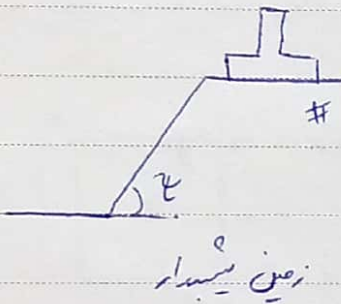 #
زمین شیبدار